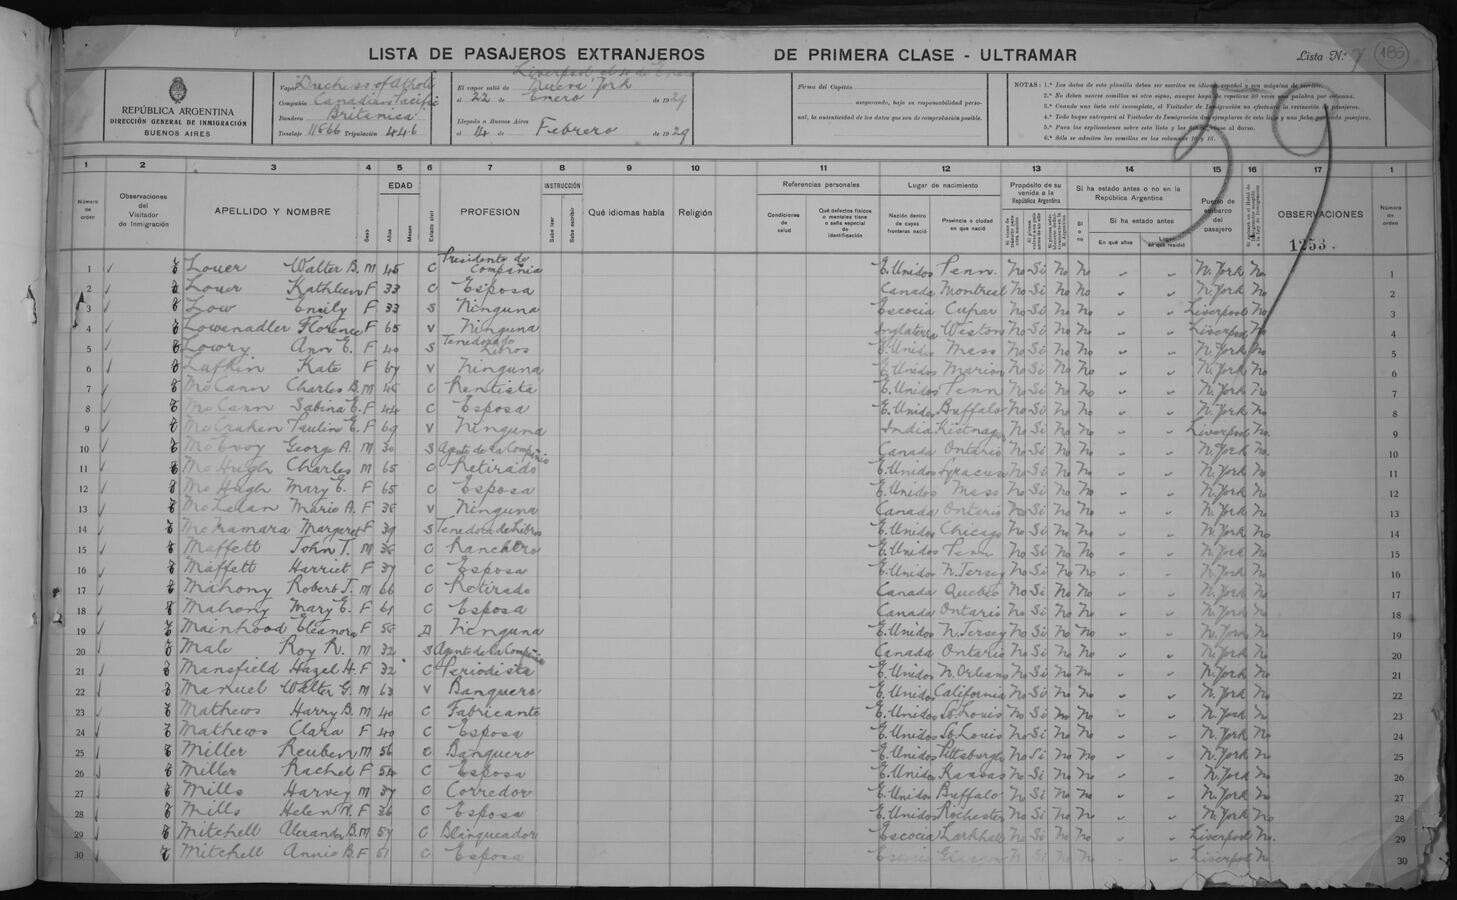 LISTA DE PASAJEROS EXTRANJEROS DE PRIMERA CLASE - ULTRAMAR
Lista N.º 7 185
REPÚBLICA ARGENTINA
DIRECCIÓN GENERAL DE INMIGRACIÓN
BUENOS AIRES
Vapor Duchess of Atholl
Compañia Canadian Pacific
Bandera Britanica
Tonelaje 11866 Tripulación 446
Liverpool el 4 de Enero
El vapor salió de Nueva York
el 22 de Enero de 1929
Llegado a Buenos Aires
el 14 Febrero de 1929
Firma del Capitán
asegurando, bajo su responsabilidad perso-
nal, la autenticidad de los datos que son de comprobación posible.
NOTAS: 1.ª Los datos de esta planilla deben ser escritos en idioma español y con máquina de escribir.
39
1 2 3 4 5 6 7 8 9 10 11 12 13 14 15 16 17 1
Número de orden
Observaciones del Visitador de Inmigración
APELLIDO Y NOMBRE
Sexo
EDAD
Años Meses
Estado civil
PROFESION
INSTRUCCIÓN
Sabe leer Sabe escribir
Qué idiomas habla
Religión
Referencias personales
Condiciones de salud
Qué defectos físicos o mentales tiene o seña especial de identificación
Lugar de nacimiento
Nación dentro de cuyas fronteras nació
Provincia o ciudad en que nació
Propósito de su venida a la República Argentina
Si ha estado antes o no en la República Argentina
Si o no
Si ha estado antes
En qué años
Lugar en que residió
Puerto de embarco del pasajero
OBSERVACIONES
1253.
Número de orden
1 Louer Walter B. M 45 C Presidente de Compañia E. Unidos Penn. No Si No No " " N. York No 1
2 Louer Kathleen F 33 C Esposa Canada Montreal No Si No No " " N. York No 2
3 Low Emily F 33 S Ninguna Escocia Cupar No Si No No " " Liverpool No 3
4 Lowenadler Florence F 65 V Ninguna Inglaterra Weston No Si No No " " Liverpool No 4
5 Lowry Ann E. F 40 S Tenedora de Libros E. Unidos Mass No Si No No " " N. York No 5
6 Lufkin Kate F 67 V Ninguna E. Unidos Marion No Si No No " " N. York No 6
7 McCann Charles B. M 45 C Rentista E. Unidos Penn No Si No No " " N. York No 7
8 McCann Sabina E. F 44 C Esposa E. Unidos Buffalo No Si No No " " N. York No 8
9 McCraken Paulin E. F 69 V Ninguna India No Si No No " " Liverpool No 9
10 McEvoy George A. M 30 S Agente de la Compañia Canada Ontario No Si No No " " N. York No 10
11 McHugh Charles M 65 C Retirado E. Unidos Syracuse No Si No No " " N. York No 11
12 McHugh Mary E. F 65 C Esposa E. Unidos Mass No Si No No " " N. York No 12
13 Marie A. F 38 V Ninguna Canada Ontario No Si No No " " N. York No 13
14 McNamara Margaret F 39 S Tenedora de Libros E. Unidos Chicago No Si No No " " N. York No 14
15 Maffett John T. M 38 C Ranchero E. Unidos Penn No Si No No " " N. York No 15
16 Maffett Harriet F 37 C Esposa E. Unidos N. Jersey No Si No No " " N. York No 16
17 Mahony Robert J. M 66 C Retirado Canada Quebec No Si No No " " N. York No 17
18 Mahony Mary E. F 61 C Esposa Canada Ontario No Si No No " " N. York No 18
19 Mainhood Eleanora F 58 D Ninguna E. Unidos N. Jersey No Si No No " " N. York No 19
20 Male Roy R. M 32 S Agente de la Compañia Canada Ontario No Si No No " " N. York No 20
21 Mansfield Hazel H. F 32 C Periodista E. Unidos N. Orleans No Si No No " " N. York No 21
22 Manuel Walter G. M 63 V Banquero E. Unidos California No Si No No " " N. York No 22
23 Mathews Harry B. M 40 C Fabricante E. Unidos St. Louis No Si No No " " N. York No 23
24 Mathews Clara F 40 C Esposa E. Unidos St. Louis No Si No No " " N. York No 24
25 Miller Reuben M 56 C Banquero E. Unidos Pittsburgh No Si No No " " N. York No 25
26 Miller Rachel F 54 C Esposa E. Unidos Kansas No Si No No " " N. York No 26
27 Mills Harvey M 37 C Corredor E. Unidos Buffalo No Si No No " " N. York No 27
28 Mills Helen M. F 36 C Esposa E. Unidos Rochester No Si No No " " N. York No 28
29 Mitchell Alexander B. M 57 C Blanqueador Escocia Larkhall No Si No No " " Liverpool No 29
30 Mitchell Annie B. F 51 C Esposa Escocia Glasgow No Si No No " " Liverpool No 30